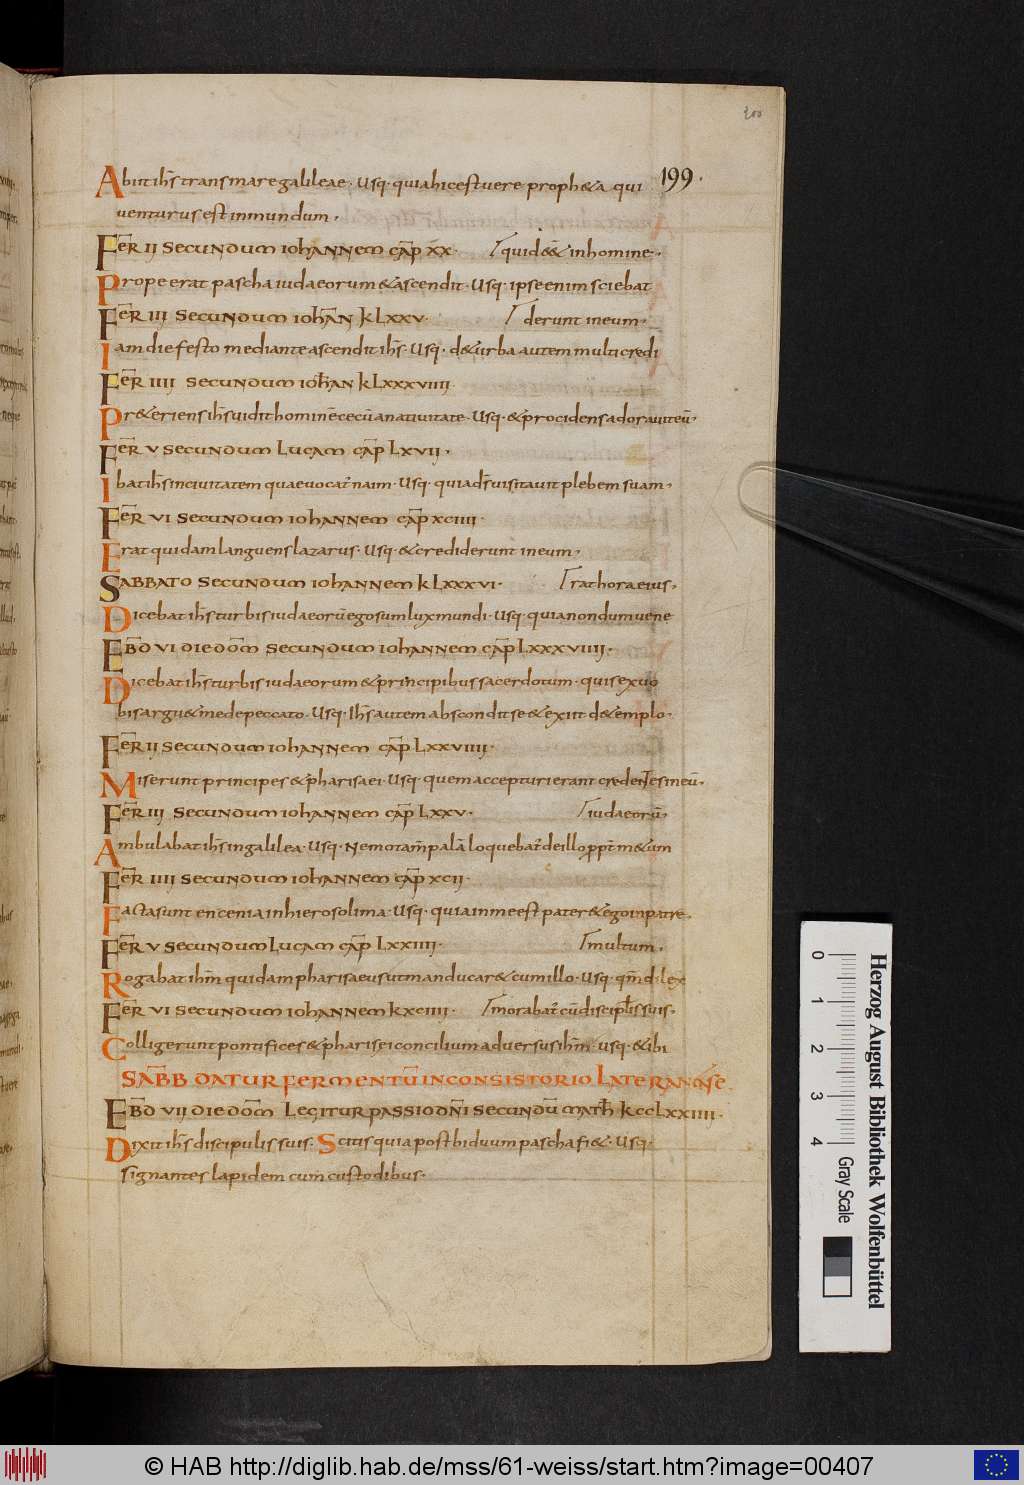 200
199.
Abiit ih̅s trans mare galileae · Usq· quia hic est uere proph&a qui
uenturus est in mundum.
FER̅ II SECUNDUM IOHANNEM CAP̅ XX · quid e&̅ in homine.
Prope erat pascha iudaeorum & ascendit · Usq· ipse enim sciebat
FER̅ III SECUNDUM IOHAN̅ K LXXV · derunt in eum.
Iam die festo mediante ascendit ih̅s · Usq· de turba autem multi credi
FER̅ IIII SECUNDUM IOHAN̅ K LXXXVIIII
Pr&eriens ih̅s uidit hominē cecū a natiuitate · Usq· & procidens adorauit eū.
FER̅ V SECUNDUM LUCAM CAP̅ LXVII .
Ibat ih̅s in ciuitatem quae uocat̅ naim · Usq· quia d̅s uisitauit plebem suam.
FER̅ VI SECUNDUM IOHANNEM CAP̅ XCIIII ·
Erat quidam languens lazarus · Usq· & crediderunt in eum.
SABBATO SECUNDUM IOHANNEM K LXXXVI · rat hora eius.
Dicebat ih̅s turbis iudaeorū ego sum lux mundi · Usq· quia nondum uene
EBD̅ VI DIE DOM̅ SECUNDUM IOHANNEM CAP̅ LXXXVIIII ·
Dicebat ih̅s turbis iudaeorum & principibus sacerdotum · quis ex uo
bis argu& me de peccato · Usq· Ih̅s autem abscondit se & exiit de templo ·
FER̅ II SECUNDUM IOHANNEM CAP̅ LXXVIIII ·
Miserunt principes & pharisaei · Usq· quem accepturi erant credentes in eū.
FER̅ III SECUNDUM IOHANNEM CAP̅ LXXV · iudaeorū.
Ambulabat ih̅s in galilea · Usq· Nemo tam̅ palā loquebat̅ de illo ppt̅ m&um
FER̅ IIII SECUNDUM IOHANNEM CAP̅ XCII ·
Facta sunt encenia in hierosolima · Usq· quia in me est pater & ego in patre.
FER̅ V SECUNDUM LUCAM CAP̅ LXXIIII · multum.
Rogabat ih̅m quidam pharisaeus ut manducar& cum illo · Usq· qm̅ dilex
FER̅ VI SECUNDUM IOHANNEM K XCIIII · morabat̅ cū discipl̅is suis.
Colligerunt pontifices & pharisei concilium aduersus ih̅m · usq· & ibi
SABB̅ DATUR FERMENTŪ IN CONSISTORIO LATERANENSE
EBD̅ VII DIE DOM̅ LEGITUR PASSIO DN̅I SECUNDŪ MATH̅ K CCLXXIIII ·
Dixit ih̅s discipulis suis · Scitis quia post biduum pascha fi& · Usq·
signantes lapidem cum custodibus ·
0 1 2 3 4
Gray Scale
Herzog August Bibliothek Wolfenbüttel
© HAB http://diglib.hab.de/mss/61-weiss/start.htm?image=00407